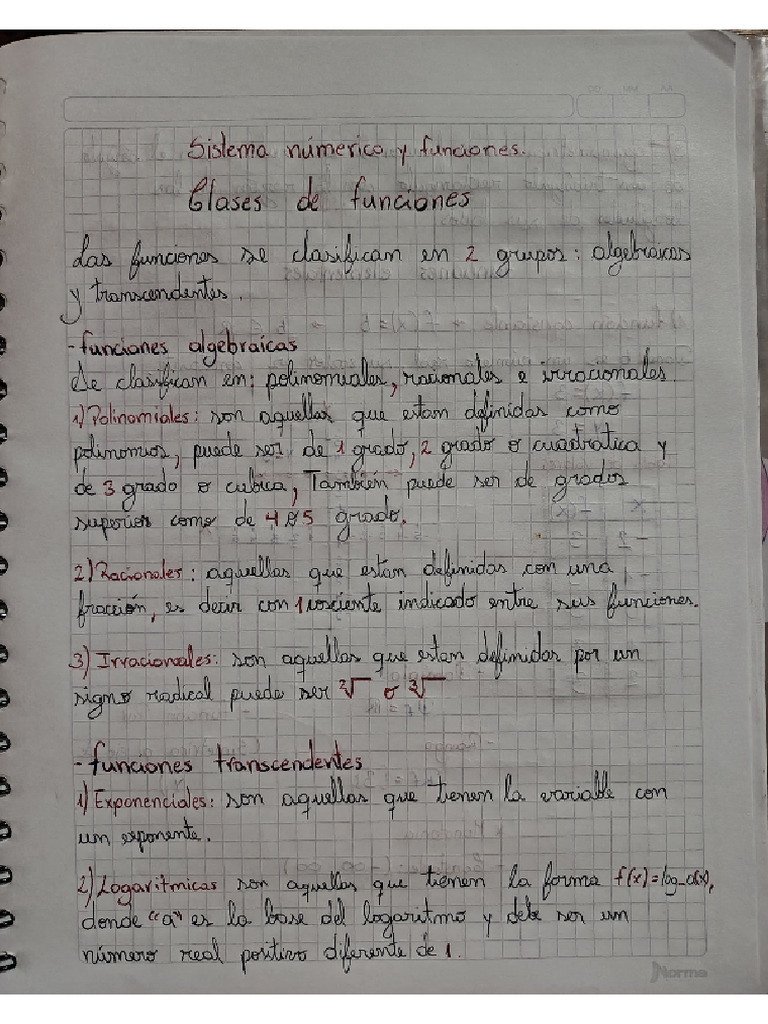 Sistema númerico y funciones.
Clases de funciones
Las funciones se clasifican en 2 grupos: algebraicas
y transcendentes.
- funciones algebraicas
Se clasifican en: polinomiales, racionales e irracionales.
1) Polinomiales: son aquellas que estam definidas como
polinomios, puede ser de 1 grado, 2 grado o cuadratica y
de 3 grado o cubica, También puede ser de grados
superior como de 4 o 5 grado.
2) Racionales: aquellas que estan definidas con una
fracción, es decir con 1 cosciente indicado entre seis funciones.
3) Irracionales: son aquellas que estan definidas por un
signo radical puede ser ²√ o ³√
- funciones transcendentes
1) Exponenciales: son aquellas que tienen la variable con
un exponente.
2) Logaritmicas son aquellas que tienen la forma f(x)=log_a(x),
donde "a" es la base del logaritmo y debe ser un
número real positivo diferente de 1.
Norma